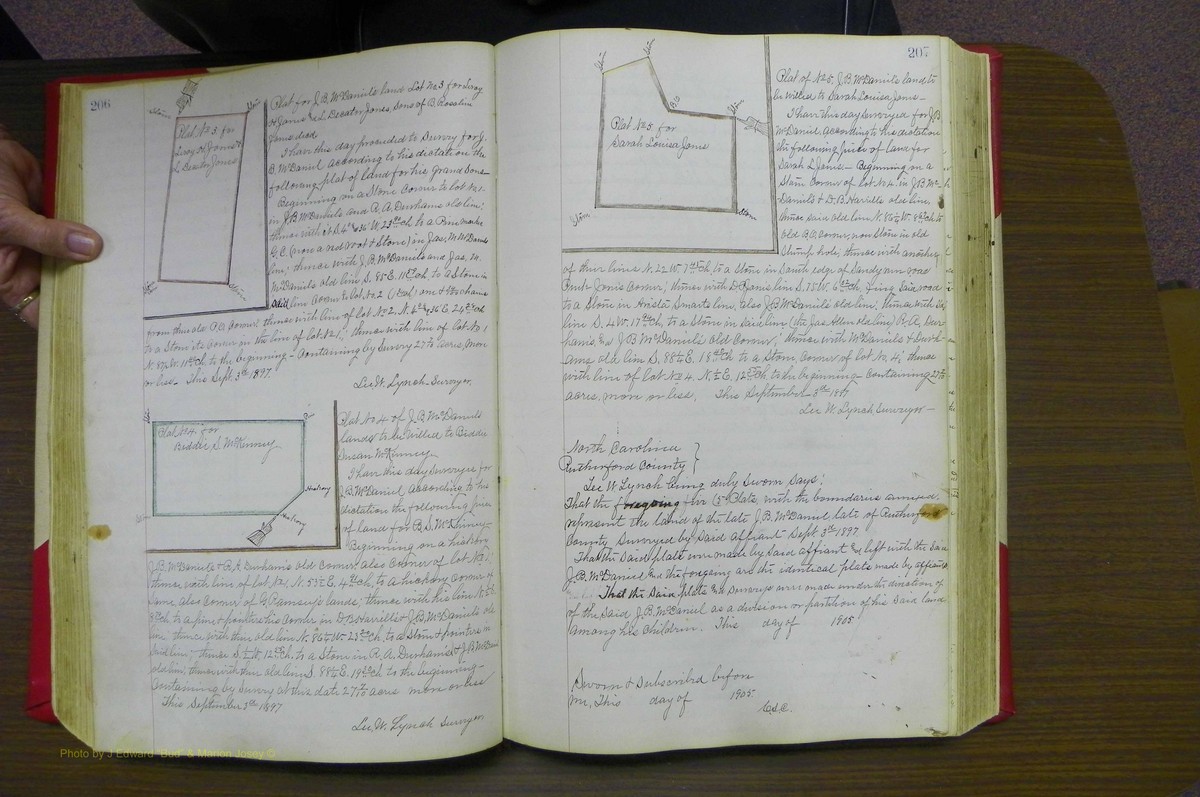 206
Stone
Stone
Plat No 3. for
Leroy H Jones &
L. Decator Jones
Stone
Stone
Plat for J.B. McDaniels land Lot No 3 for Leroy
H Jones & L. Decator Jones, Sons of B. Rosaline
Jones died
I have this day proceeded to Survey for J.
B. McDaniel according to his dictation the
following plat of land for his Grand Sons
Beginning on a Stone Corner to lot No 1.
in J.B. McDaniels and R. A. Durhams old line;
thence with it S. 4 W. 23 ch to a Pine marked
G.C. (now a red root & Stone) in Jas. M. McDaniels
line; thence with J. B. McDaniels and Jas. M.
McDaniels old line S. 85 E. 11 ch to a Stone in
Said line Corner to lot No 2
from the old P.O. Corner; thence with line of lot No 2. N. 4 E 24 ch
to a Stone its corner in the line of lot No 1; thence with line of lot No 1
N. 87 W. 11 ch. to the beginning - Containing by Survey 27 acres, more
or less. This Sept. 3rd 1897.
Lee W. Lynch Surveyor.
Plat No 4 for
Biddie S. McKinney
Hickory
Hickory
Plat No 4 of J.B. McDaniels
lands to be willed to Biddie
Susan McKinney.
I have this day Surveyed for
J.B. McDaniel according to his
dictation the following piece
of land for B.S. McKinney-
Beginning on a hickory
J.B. McDaniels & R.A. Durhams old Corner, also Corner of lot No 1;
thence with line of lot No 1. N. 53 E. 4 ch, to a hickory Corner of
Same, also Corner of G. Ramseys lands; thence with his line N.
8 ch to a pine & pointers his Corner in D.B. Harrells & J.B. McDaniels old
line thence with their old line N. 86 W. 23 ch. to a Stone & pointers in
Said line; thence S. W. 12 ch. to a Stone in R. A. Durhams & J.B. McDaniels
old line; thence with their old line S. 88 E. 19 ch. to the beginning-
Containing by Survey at this date 27 acres more or less
This September 3rd 1897
Lee. W. Lynch Surveyor
207
Stone
Stone
B.O
Stone
Plat No 5 for
Sarah Louisa Jones
Stone
Stone
Plat of No 5, J.B. McDaniels land to
be willed to Sarah Louisa Jones-
I have this day Surveyed for J.B
McDaniel according to his dictation
the following piece of land for
Sarah L Jones- Beginning on a
Stone Corner of lot No 4. in J.B. Mc-
Daniels & D.B. Harrells old line,
thence said old line N. 86 W. 8 ch to
old B.O. Corner, now Stone in old
Stump hole; thence with another
of their lines N. 22 W. 7 ch, to a Stone in South edge of Sandy run road
Jones Corner; thence with D. Jones line S. 75 W. 6 ch, Said road
to a Stone in Smarts line, also J.B. McDaniels old line; thence with
line S. 4 W. 17 ch, to a Stone in said line (the Jas Allen old line) R. A. Dur-
hams, & J. B McDaniels Old Corner; thence with McDaniels & Durh-
ams old line S. 88 E. 18 ch to a Stone, Corner of lot No 4; thence
with line of lot No 4. N. E. 12 ch. to the beginning- Containing 27
acres, more or less. This September 3rd 1897
Lee W. Lynch Surveyor-
North Carolina
Rutherford County
Lee W Lynch being duly Sworn Says;
That the foregoing five (5 Plats, with the boundaries annexed,
represent the land of the late J.B. McDaniel, late of Rutherford
County Surveyed by Said affiant Sept. 3rd 1897.
That the said plats were made by said affiant & left with the Said
J.B. McDaniel and the foregoing are the identical plats made by affiant
That the Said plats & Surveys were made under the direction of
of the Said J.B. McDaniel as a division or partition of his Said land
among his Children. This day of 1905
Sworn & Subscribed before
me, This day of 1905
C.S.C.
Photo by J Edward "Bud" & Marion Josey ©